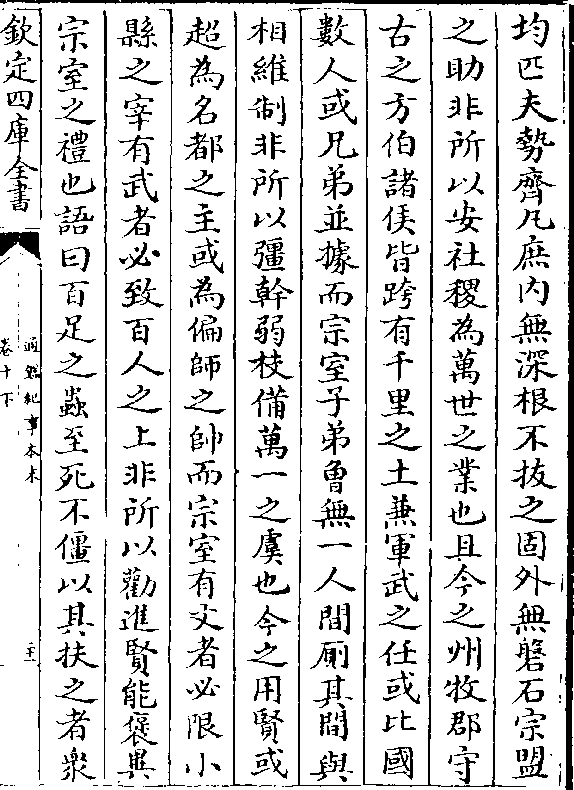 均匹夫勢齊凡庶内無深根不抜之固外無磐石宗盟
之助非所以安社稷為萬世之業也且今之州牧郡守
古之方伯諸侯皆跨有千里之土兼軍武之任或比國
數人或兄弟並據而宗室子弟曾無一人間厠其間與
相維制非所以彊幹弱枝備萬一之虞也今之用賢或
超為名都之主或為偏師之帥而宗室有文者必限小
縣之宰有武者必致百人之上非所以勸進賢能褒異
宗室之禮也語曰百足之蟲至死不僵以其扶之者衆
欽定四庫全書
通鑑紀事本末
卷十下